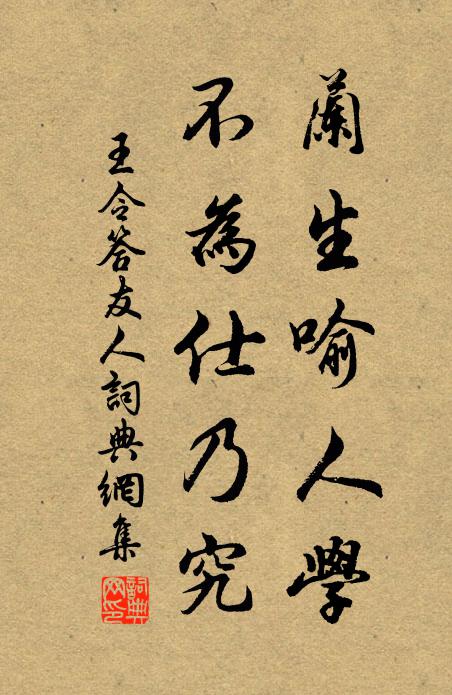 蘭生喻人學
不為仕乃究
王令答友人詞典網集
詞典網印